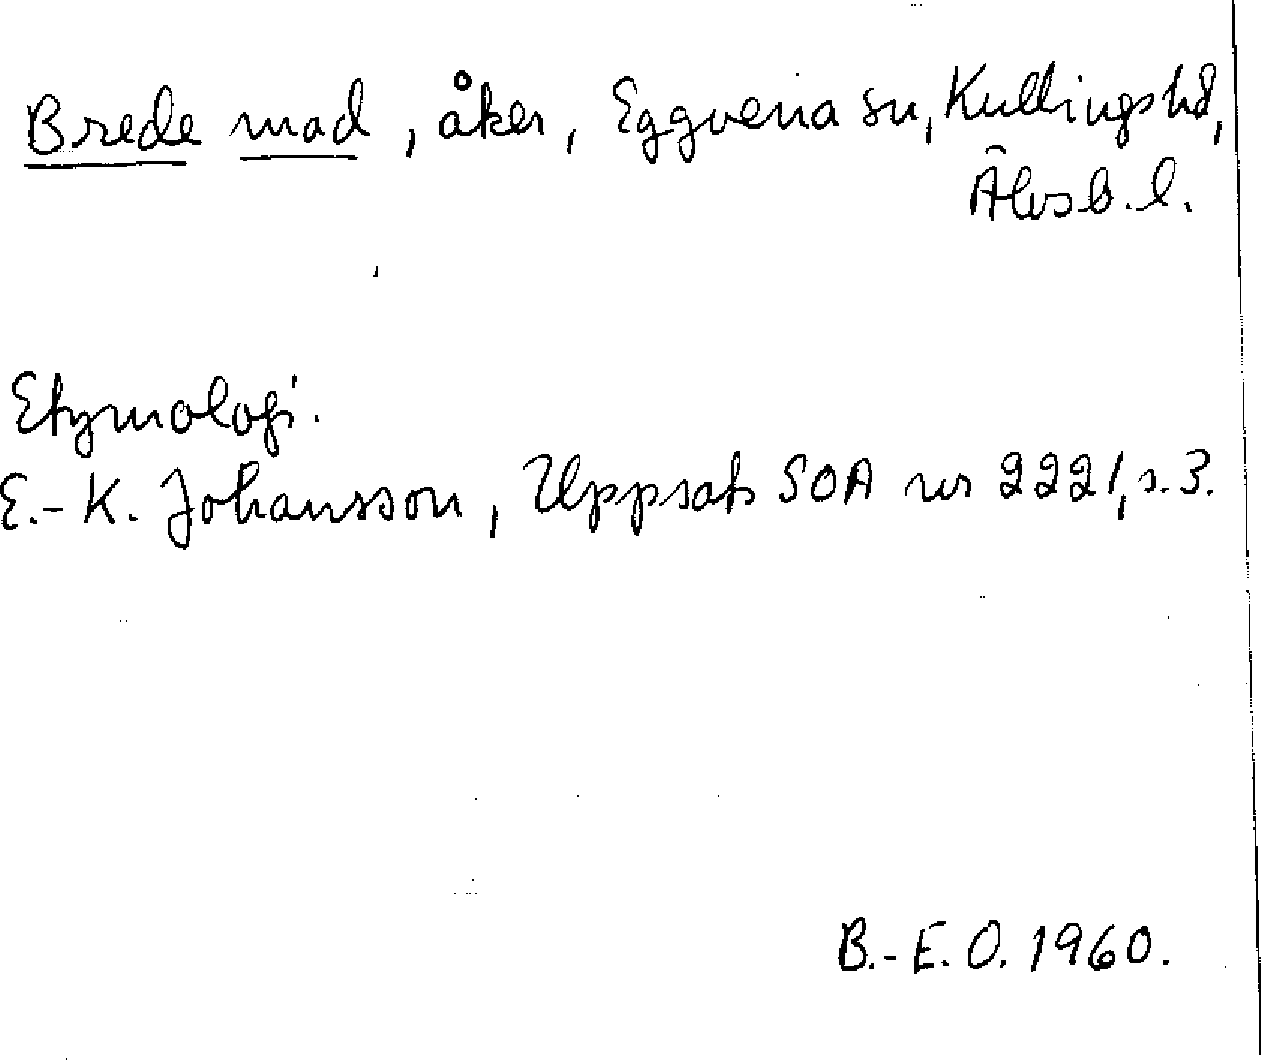 Brede mad, åker, Eggvena sn, Kullings hd,
Älvsb. l.
Etymologi.
E.-K. Johansson, Uppsats SOA nr 2221, s. 3.
B.-E. O. 1960.